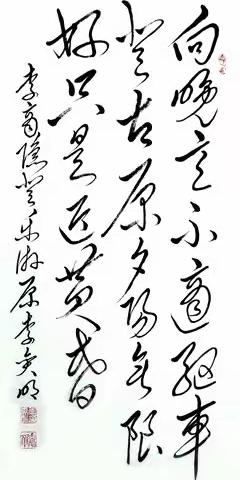 向晚意不適驅車
登古原夕陽無限
好只是近黃昏
李商隱登樂游原李明